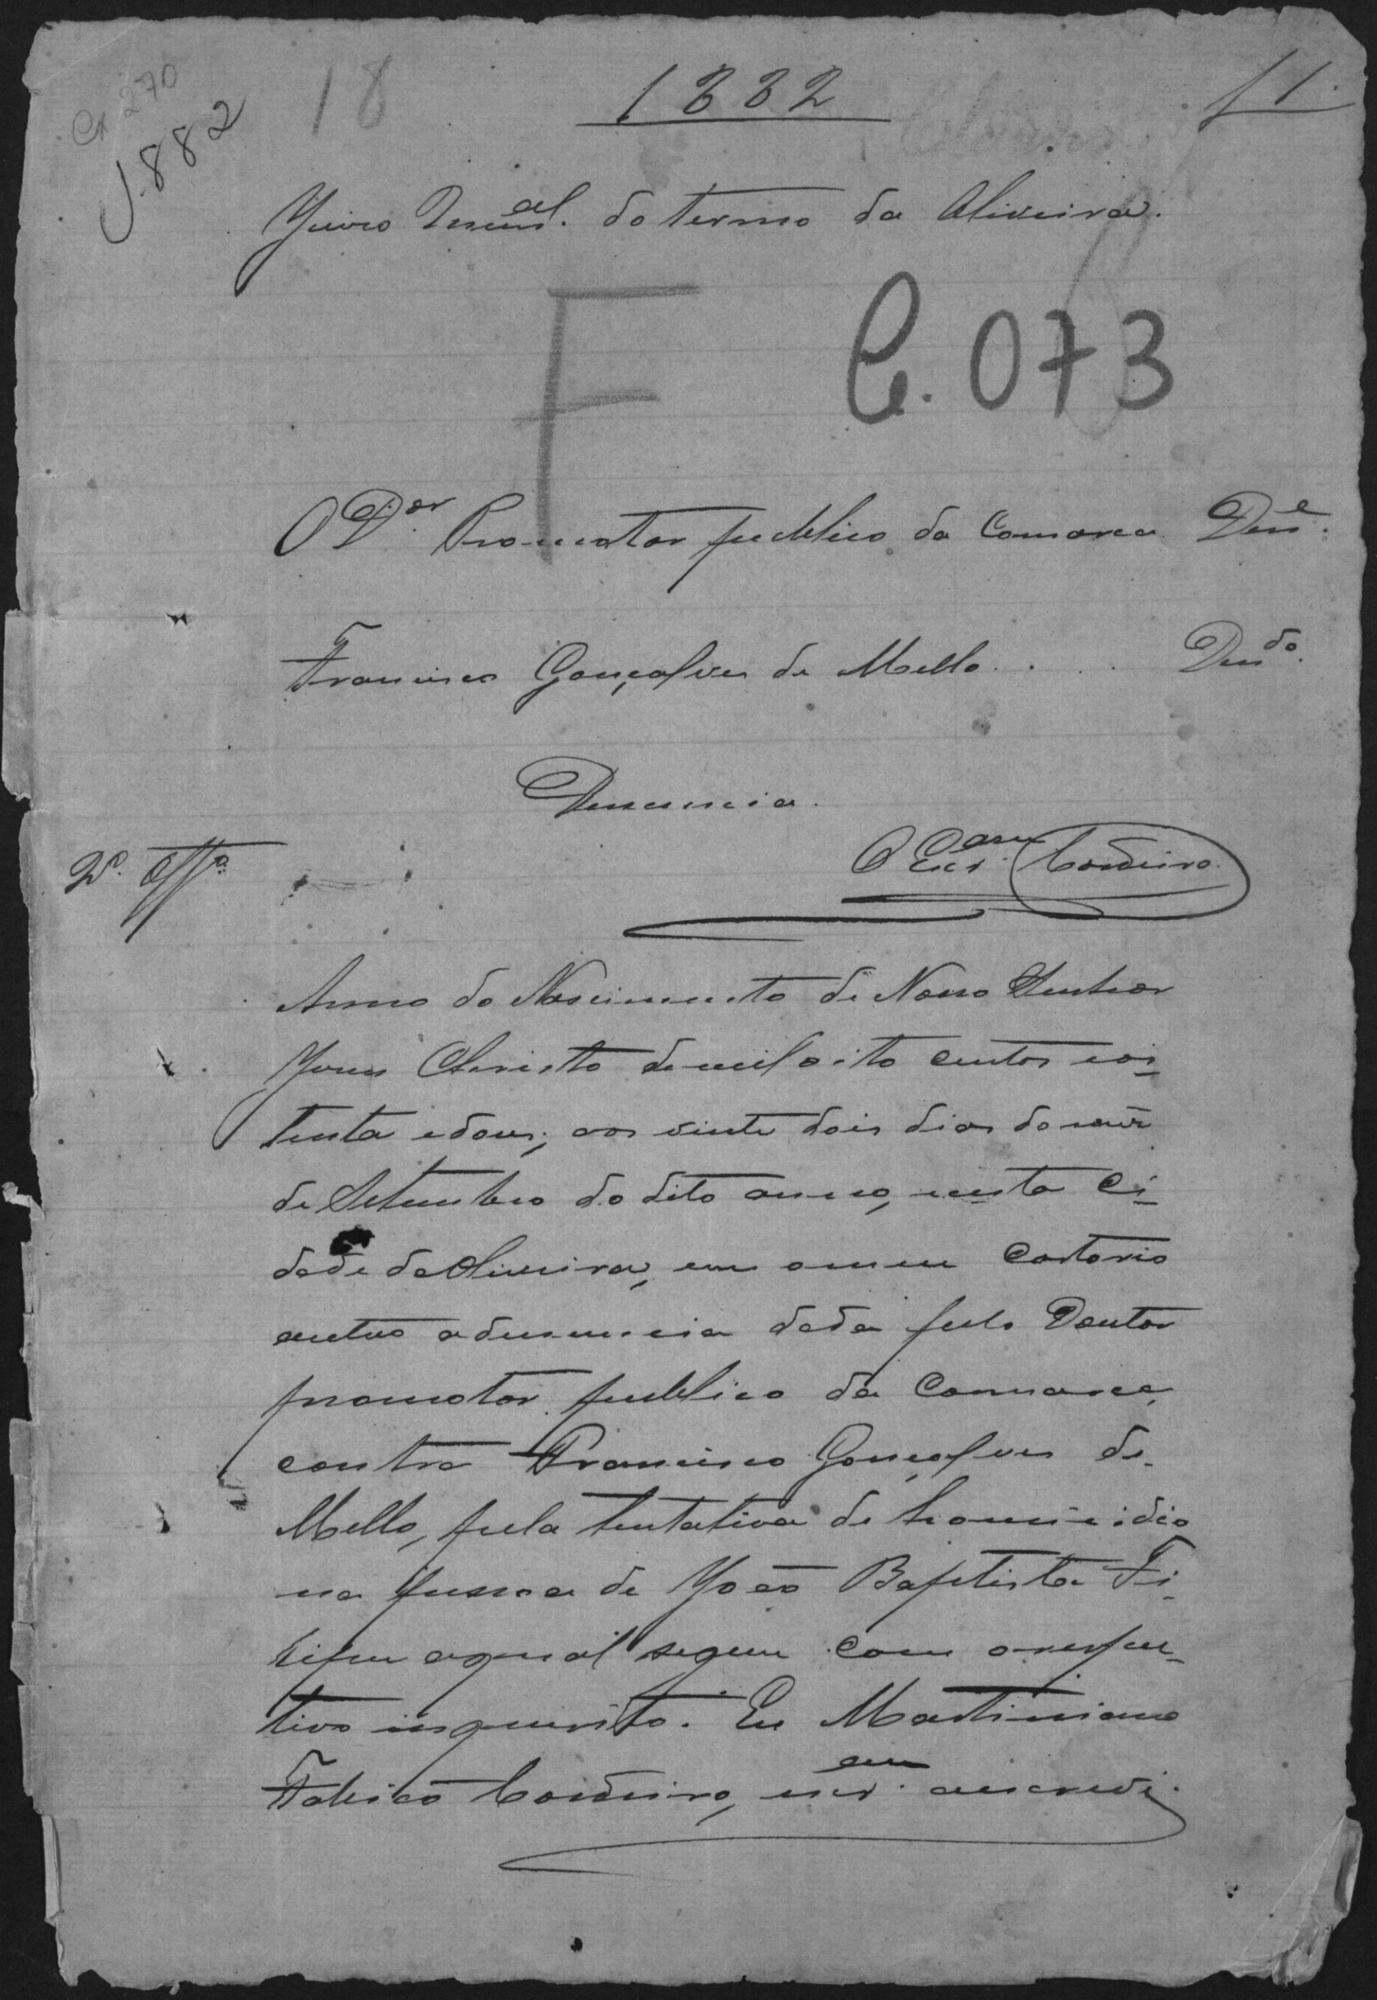 Cx 270
1882
18
1882
f 1.
Juizo Mun.al do termo da Oliveira.
F
C. 073
O D.or Promotor publico da Comarca Den.e
Francisco Gonçalves de Mello . . . Den.do
Denuncia.
2º. Off.º
O Escr.am Cordeiro
Anno do Nascimento de Nosso Senhor
Jesus Christo de mil oito centos e oi-
tenta e dous, aos vinte dois dias do mez
de Setembro do dito anno, nesta Ci-
dade da Oliveira, em o meu Cartorio
autuo a denuncia dada pelo Doutor
promotor publico da Comarca,
contra Francisco Gonçalves de
Mello, pela tentativa de homicidio
na pessoa de João Baptista
a qual segue com o respec-
tivo inquerito. Eu Martiniano
Cordeiro, escr.am o escrevi.